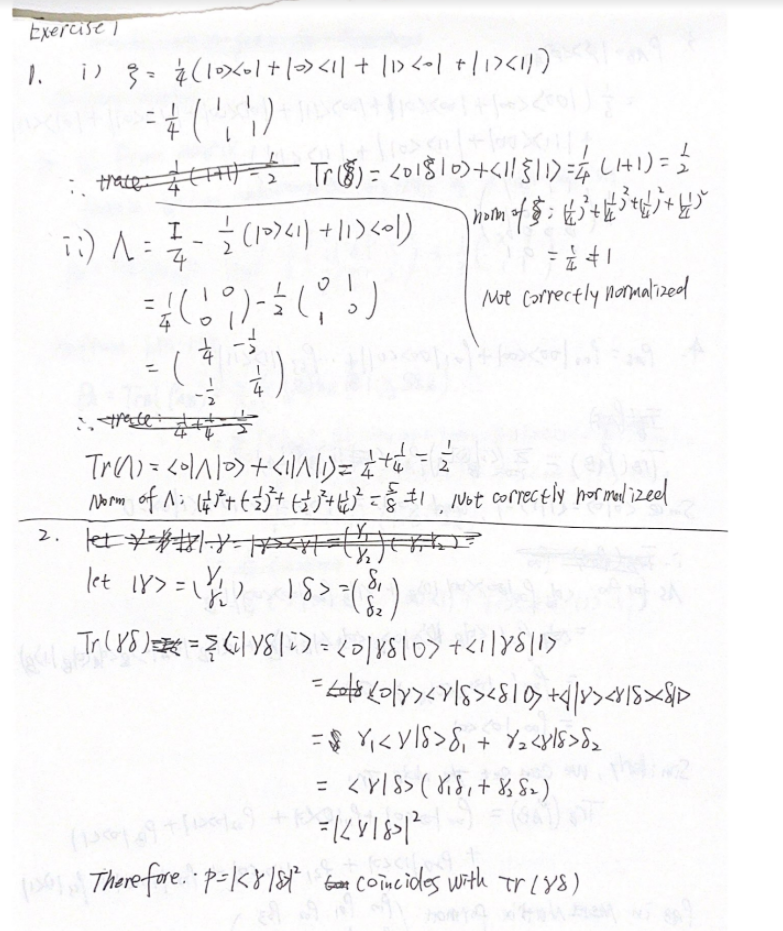 Exercise 1
1. i) ξ = 1/4 (|0><0| + |0><1| + |1><0| + |1><1|)
= 1/4 ( 1 1 
1 1 )
∴ trace: 1/4 (1+1) = 1/2 Tr(ξ) = <0|ξ|0> + <1|ξ|1> = 1/4 (1+1) = 1/2
norm of ξ: (1/4)² + (1/4)² + (1/4)² + (1/4)²
= 1/4 ≠ 1
Not correctly normalized
ii) Λ = I/4 - 1/2 (|0><1| + |1><0|)
= 1/4 ( 1 0 
0 1 ) - 1/2 ( 0 1 
1 0 )
= ( 1/4 -1/2 
-1/2 1/4 )
∴ trace: 1/4 + 1/4 = 1/2
Tr(Λ) = <0|Λ|0> + <1|Λ|1> = 1/4 + 1/4 = 1/2
Norm of Λ: (1/4)² + (-1/2)² + (-1/2)² + (1/4)² = 5/8 ≠ 1 Not correctly normalized
2.
let |γ> = ( γ1 
γ2 ) |δ> = ( δ1 
δ2 )
Tr(γδ) = Σi <i|γδ|i> = <0|γδ|0> + <1|γδ|1>
= <0|γ><γ|δ><δ|0> + <1|γ><γ|δ><δ|1>
= γ1<γ|δ>δ1 + γ2<γ|δ>δ2
= <γ|δ> (γ1δ1 + γ2δ2)
= |<γ|δ>|²
Therefore. P = |<γ|δ>|² coincides with Tr(γδ)